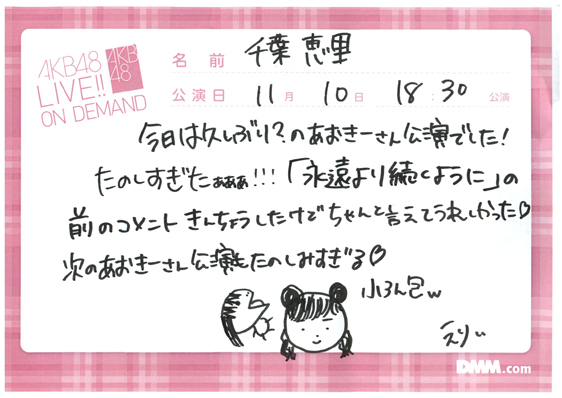 AKB48
LIVE!!
ON DEMAND
AKB
48
名前 千葉 恵里
公演日 11月 10日 18:30 公演
今日は久しぶり?のあおきーさん公演でした!
たのしすぎたぁぁぁ!!!「永遠より続くように」の
前のコメントきんちょうしたけどちゃんと言えてうれしかった♡
次のあおきーさん公演もたのしみすぎる♡
小ろん包w
えりぃ
DMM.com